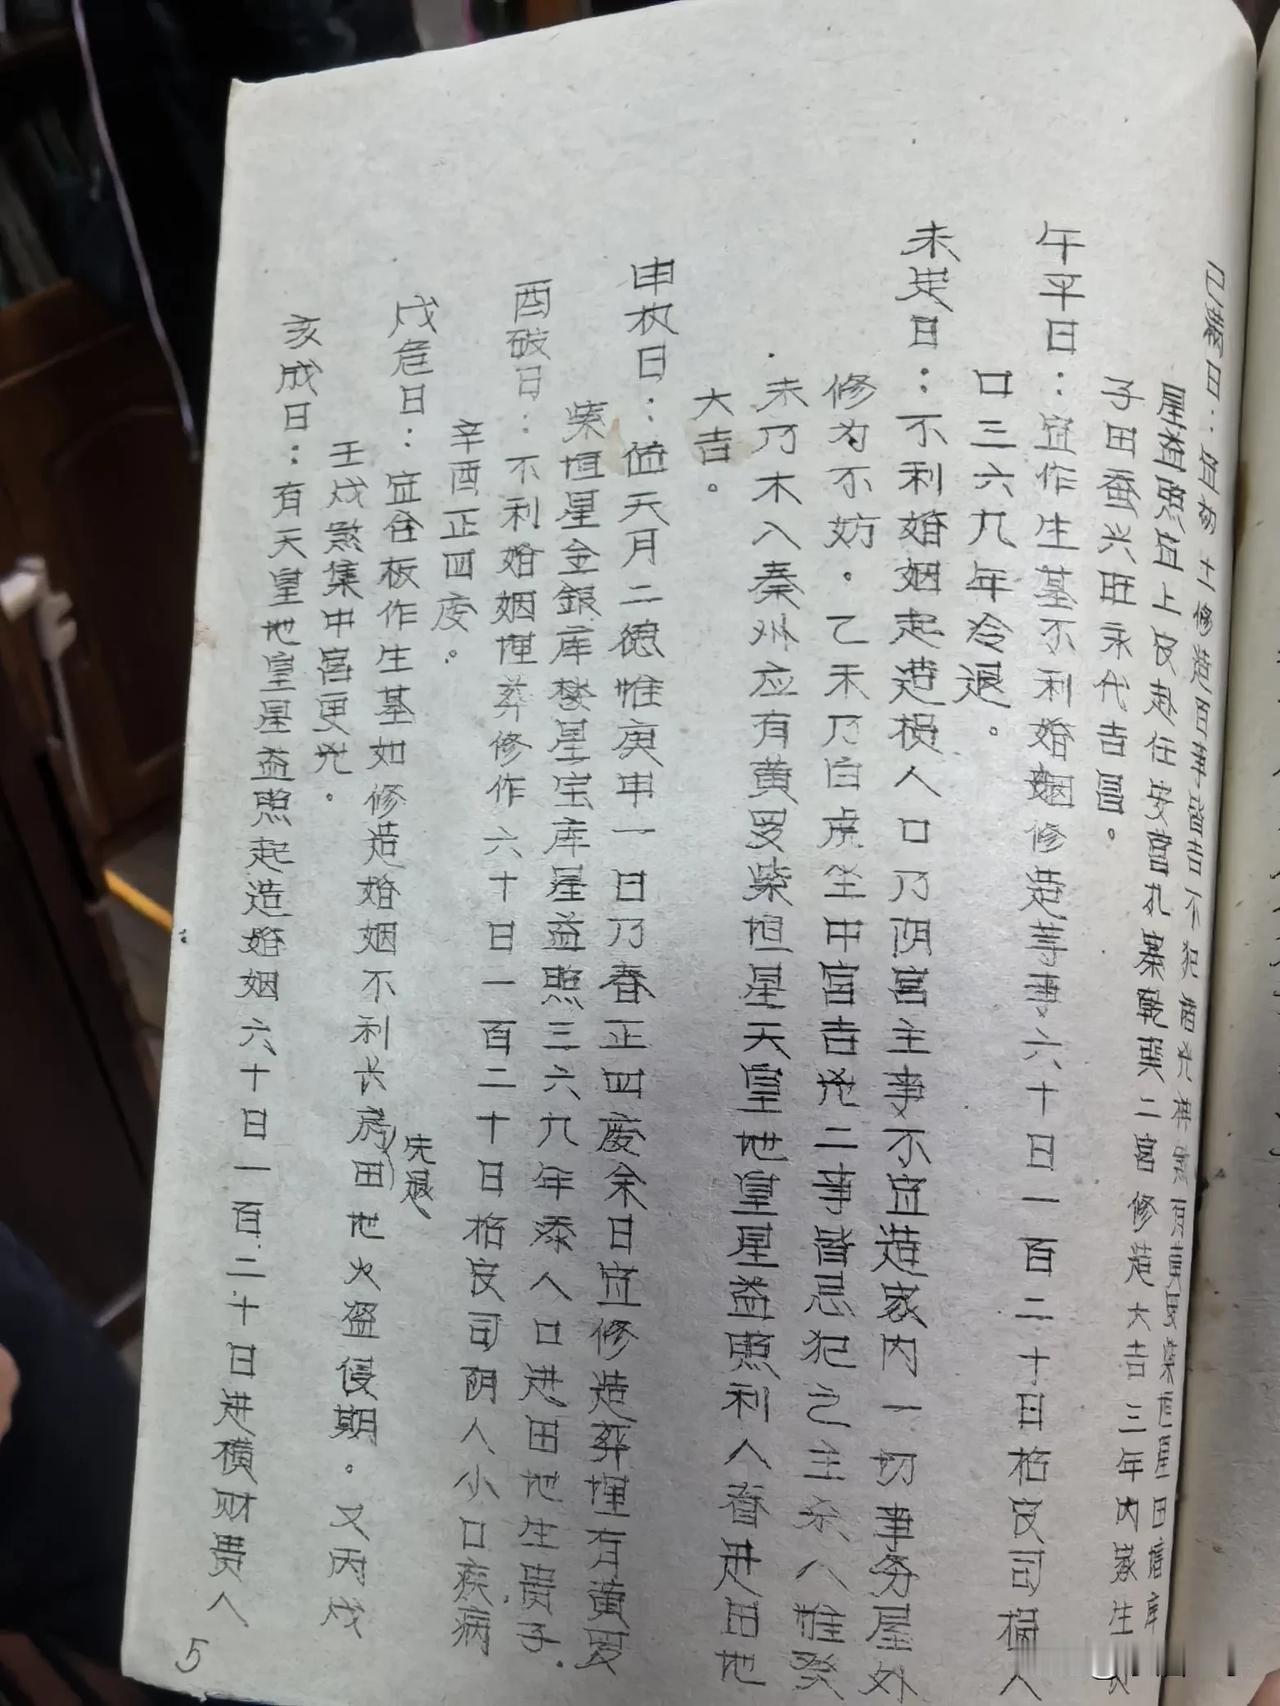 巳满日：宜动土修造百事皆吉不犯 有黄罗紫恒星田塘库
星益照宜上
子田蚕兴旺永代吉昌。
午平日：宜作生基不利婚姻修造等事六十日一百二十日招 司祸人
口三六九年冷退。
未定日：不利婚姻起造损人口乃阴宫主事不宜造家内一切事务屋外
修为不妨。乙未乃白虎坐中宫吉地二事皆忌犯之主杀人惟癸
未乃木入秦州应有黄罗紫恒星天皇地皇星益照利人眷进田地
大吉。
申执日：值天月二德惟庚申一日乃春正四废余日宜修造葬埋有黄罗
紫恒星金銀库楼星宝库星益照三六九年添人口进田地生贵子.
酉破日：不利婚姻埋葬修作六十日一百二十日招 司阴人小口疾病
辛酉正四废。
戌危日：宜合板作生基如修造婚姻不利长房田地火盗侵期。又丙戌
先退
壬戌煞集中宫更凶。
亥成日：有天皇地皇星益照起造婚姻六十日一百二十日进横财贵人
5